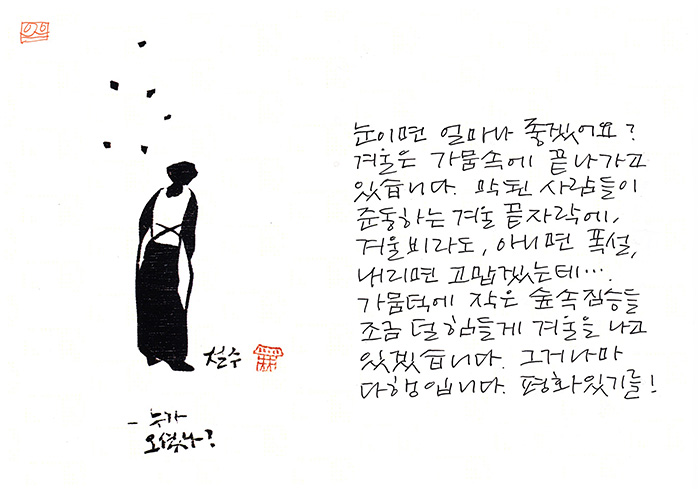 눈이면 얼마나 좋겠어요?
겨울은 가뭄속에 끝나가고
있습니다. 막된 사람들이
준동하는 겨울 끝자락에,
겨울비라도, 아니면 폭설,
내리면 고맙겠는데….
가뭄덕에 작은 숲속짐승들
조금 덜 힘들게 겨울을 나고
있겠습니다. 그거나마
다행입니다. 평화있기를!
철수
- 누가
오셨나?